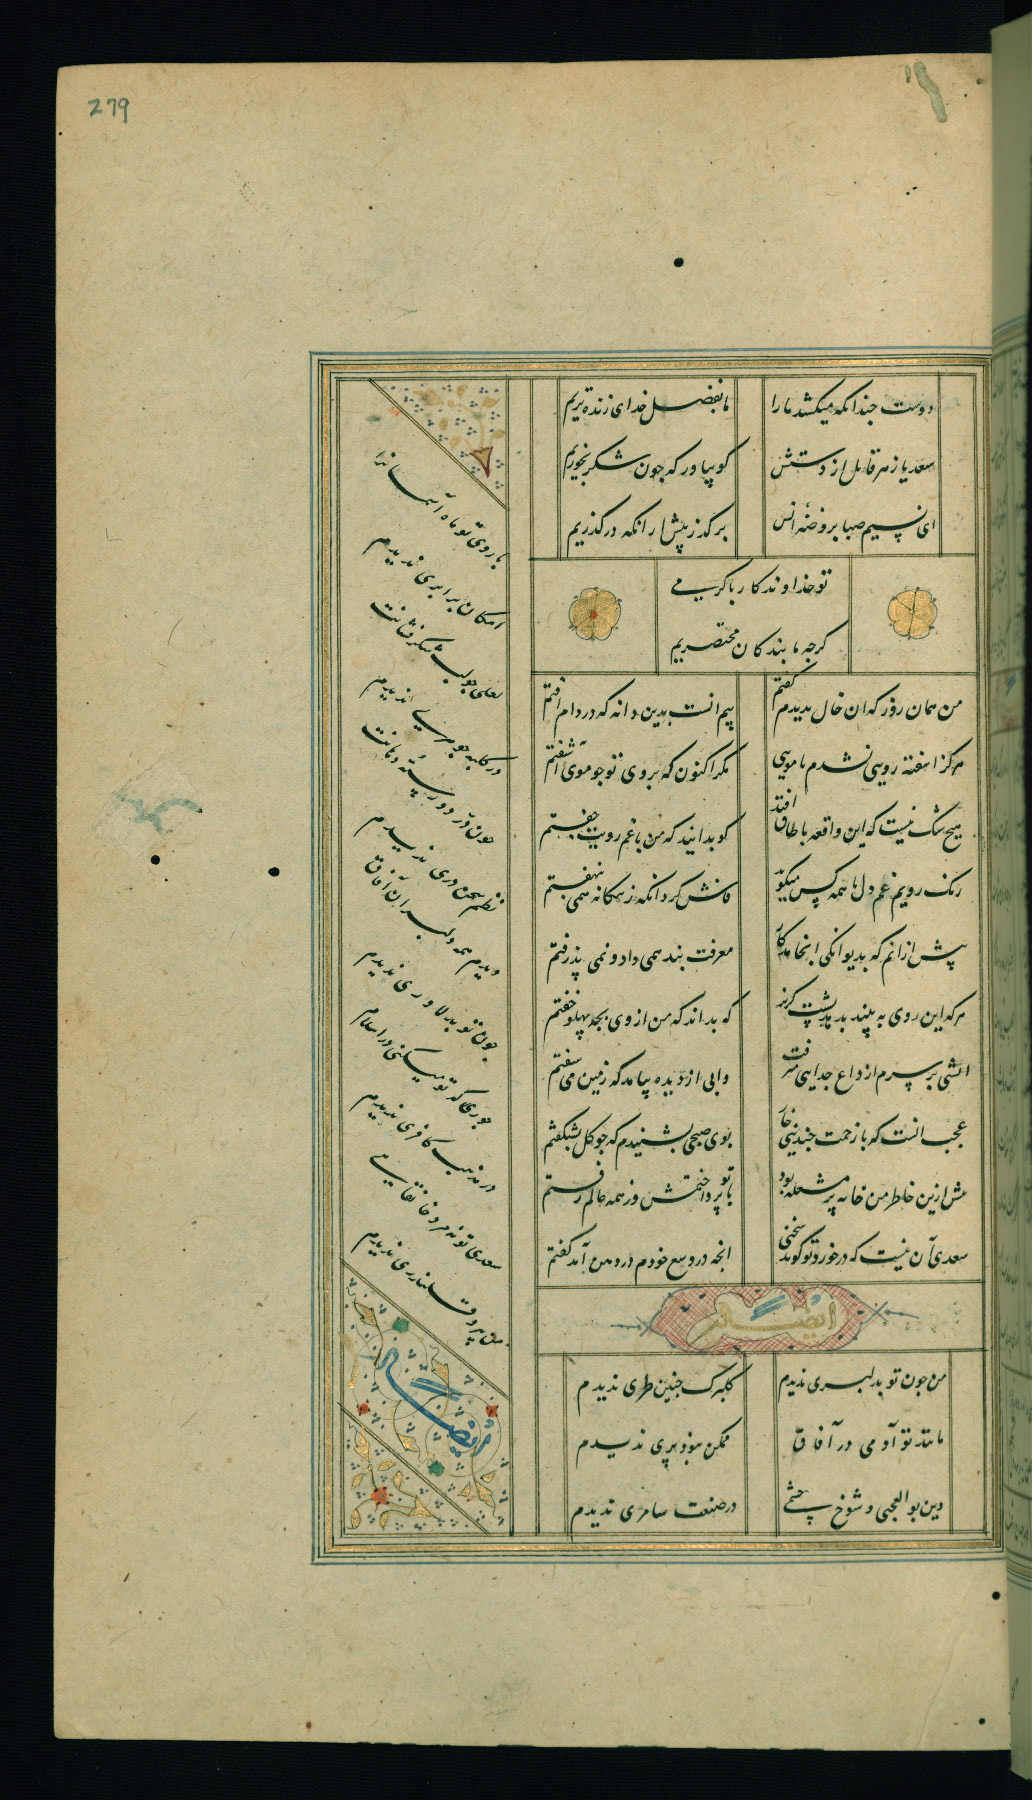 279
دوست جندانکه میکشد ما را
ما بفضل خدای زنده تریم
سعدیا زهر قاتل از دستش
کو بیاور که جون شکر بخوریم
ای نسیم صبا بروضه انس
بر کذر زپیش از انکه در کذریم
تو خداوند کار با کرمی
کرجه ما بندکان مختصریم
من همان روز که ان خال بدیدم کفتم
بیم انست بدین دانه که در دام افتم
هرکز اشفته رویی نشدم یا مویی
مکر اکنون که بروی تو جو موی آشفتم
هیج شک نیست که این واقعه با طاق افتد
کو بدانید که من با غم رویت جفتم
رنک رویم غم دل با همه کس میکوید
فاش کرد انکه ز همکانه همی بنهفتم
پیش از انم که بدیوانکی انجامد کار
معرفت بند همی داد و نمی پذرفتم
هرکه این روی به بیند بدهد پشت کریز
که بداند که من از وی بجه پهلو خفتم
اتشی بر سرم از داغ جدایی میرفت
وابی از دیده بیامد که زمین می سفتم
عجب انست که با زحمت جندینی خار
بوی صبحی بشنیدم که جو کل بشکفتم
پیش ازین خاطر من خانه پر مشعله بود
با تو پرداختمش وز همه عالم رفتم
سعدی آن نیست که در خورد تو کوید سخنی
انجه در وسع خودم در دهن آمد کفتم
ایضا
من جون تو بدلبری ندیدم
کلبرک جنین طری ندیدم
مانند تو آدمی در آفاق
ممکن نبود پری ندیدم
وین بوالعجبی و شوخ چشمی
در صنعت سامری ندیدم
با روی تو ماه آسمانرا
امکان برابری ندیدم
لعلی جو لب شکر فشانت
در کلبه جوهری ندیدم
جون در دو رسته دهانت
نظم سخن دری ندیدم
دیدم همه دلبران آفاق
جون تو بدلاوری ندیدم
جوری که تو میکنی در اسلام
در مذهب کافری ندیدم
سعدی تو نه مرد خانقاهی
من پیر و قلندری ندیدم